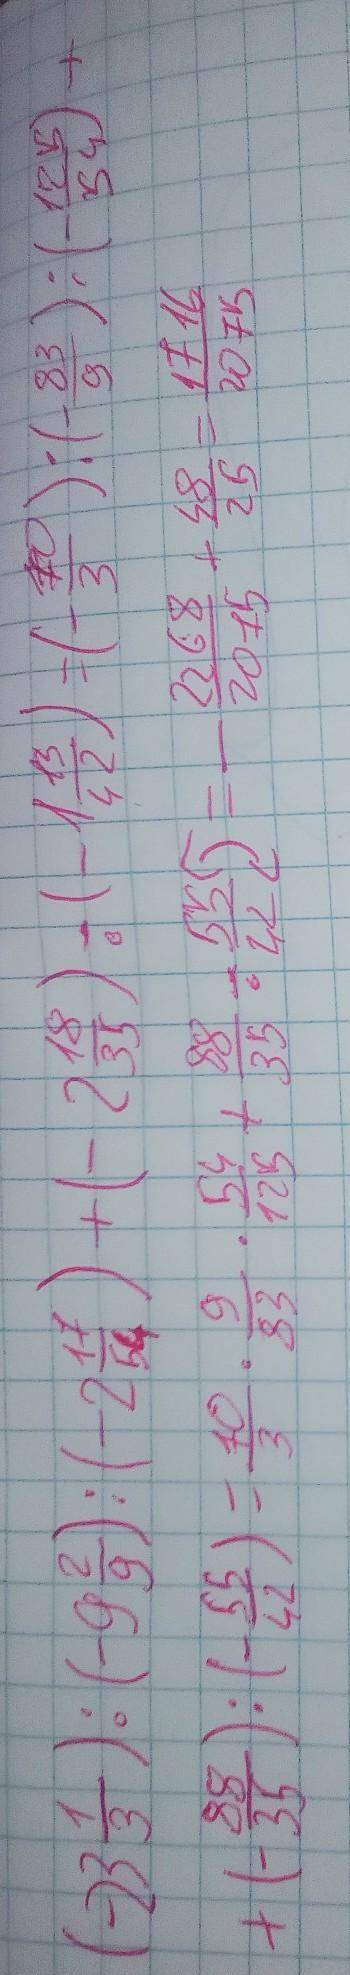 (-23 1/3) : (-9 2/9) : (-2 17/54) + (-2 18/35) : (-1 13/42) = (-70/3) : (-83/9) : (-125/54) +
+ (-88/35) : (-55/42) = 70/3 · 9/83 · 54/125 + 88/35 · 55/42 = - 2268/2075 + 48/25 = 1716/2075